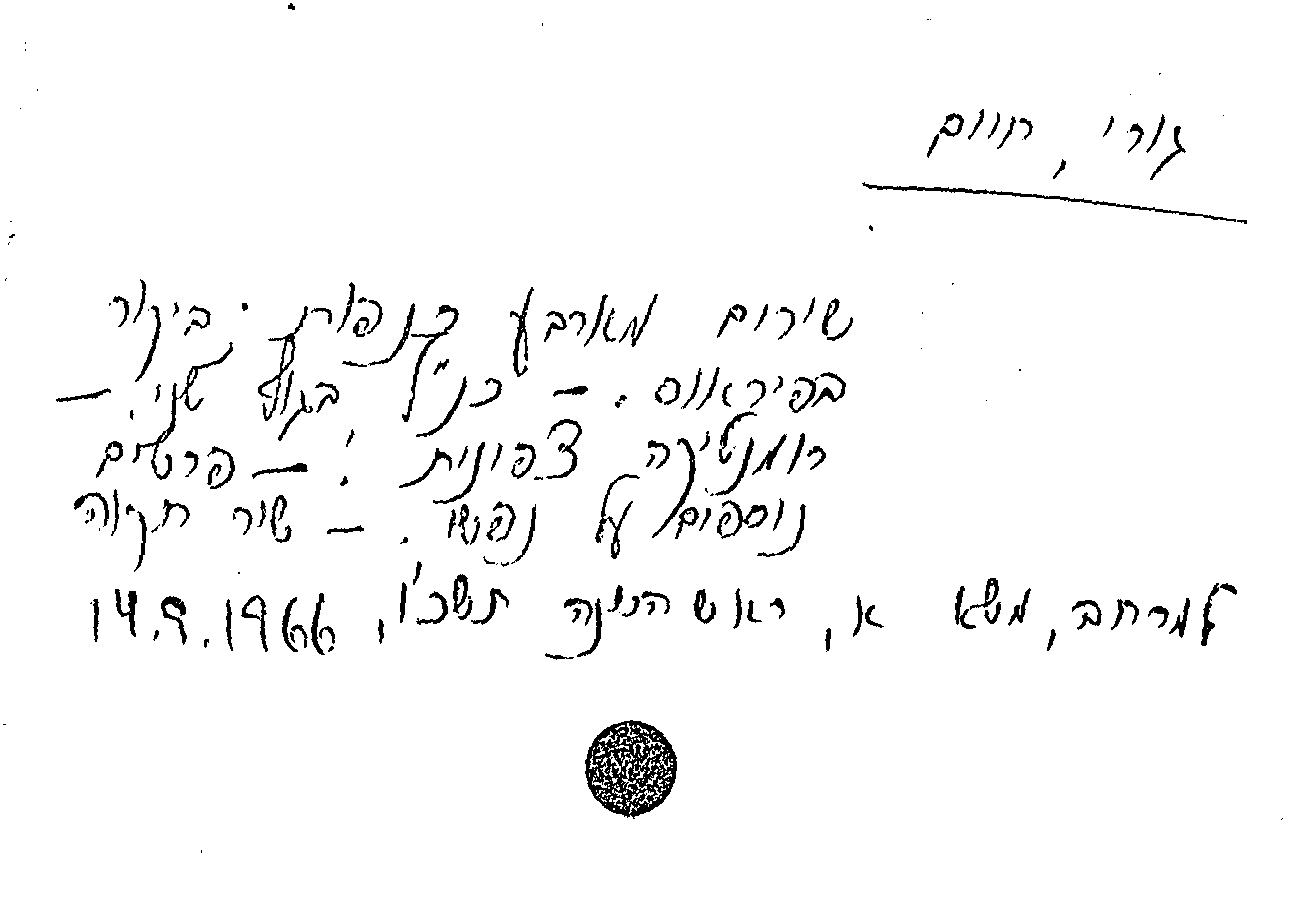 גורי, חיים
שירים מארבע כנפות. ביקור
בפיראוס. — כנ"ל בגוף שני. —
רומנטיקה צפונית. — פרטים
נוספים על נפשו. — שיר תקוה
למרחב, משא א, ראש השנה תשכ"ו, 14.9.1966